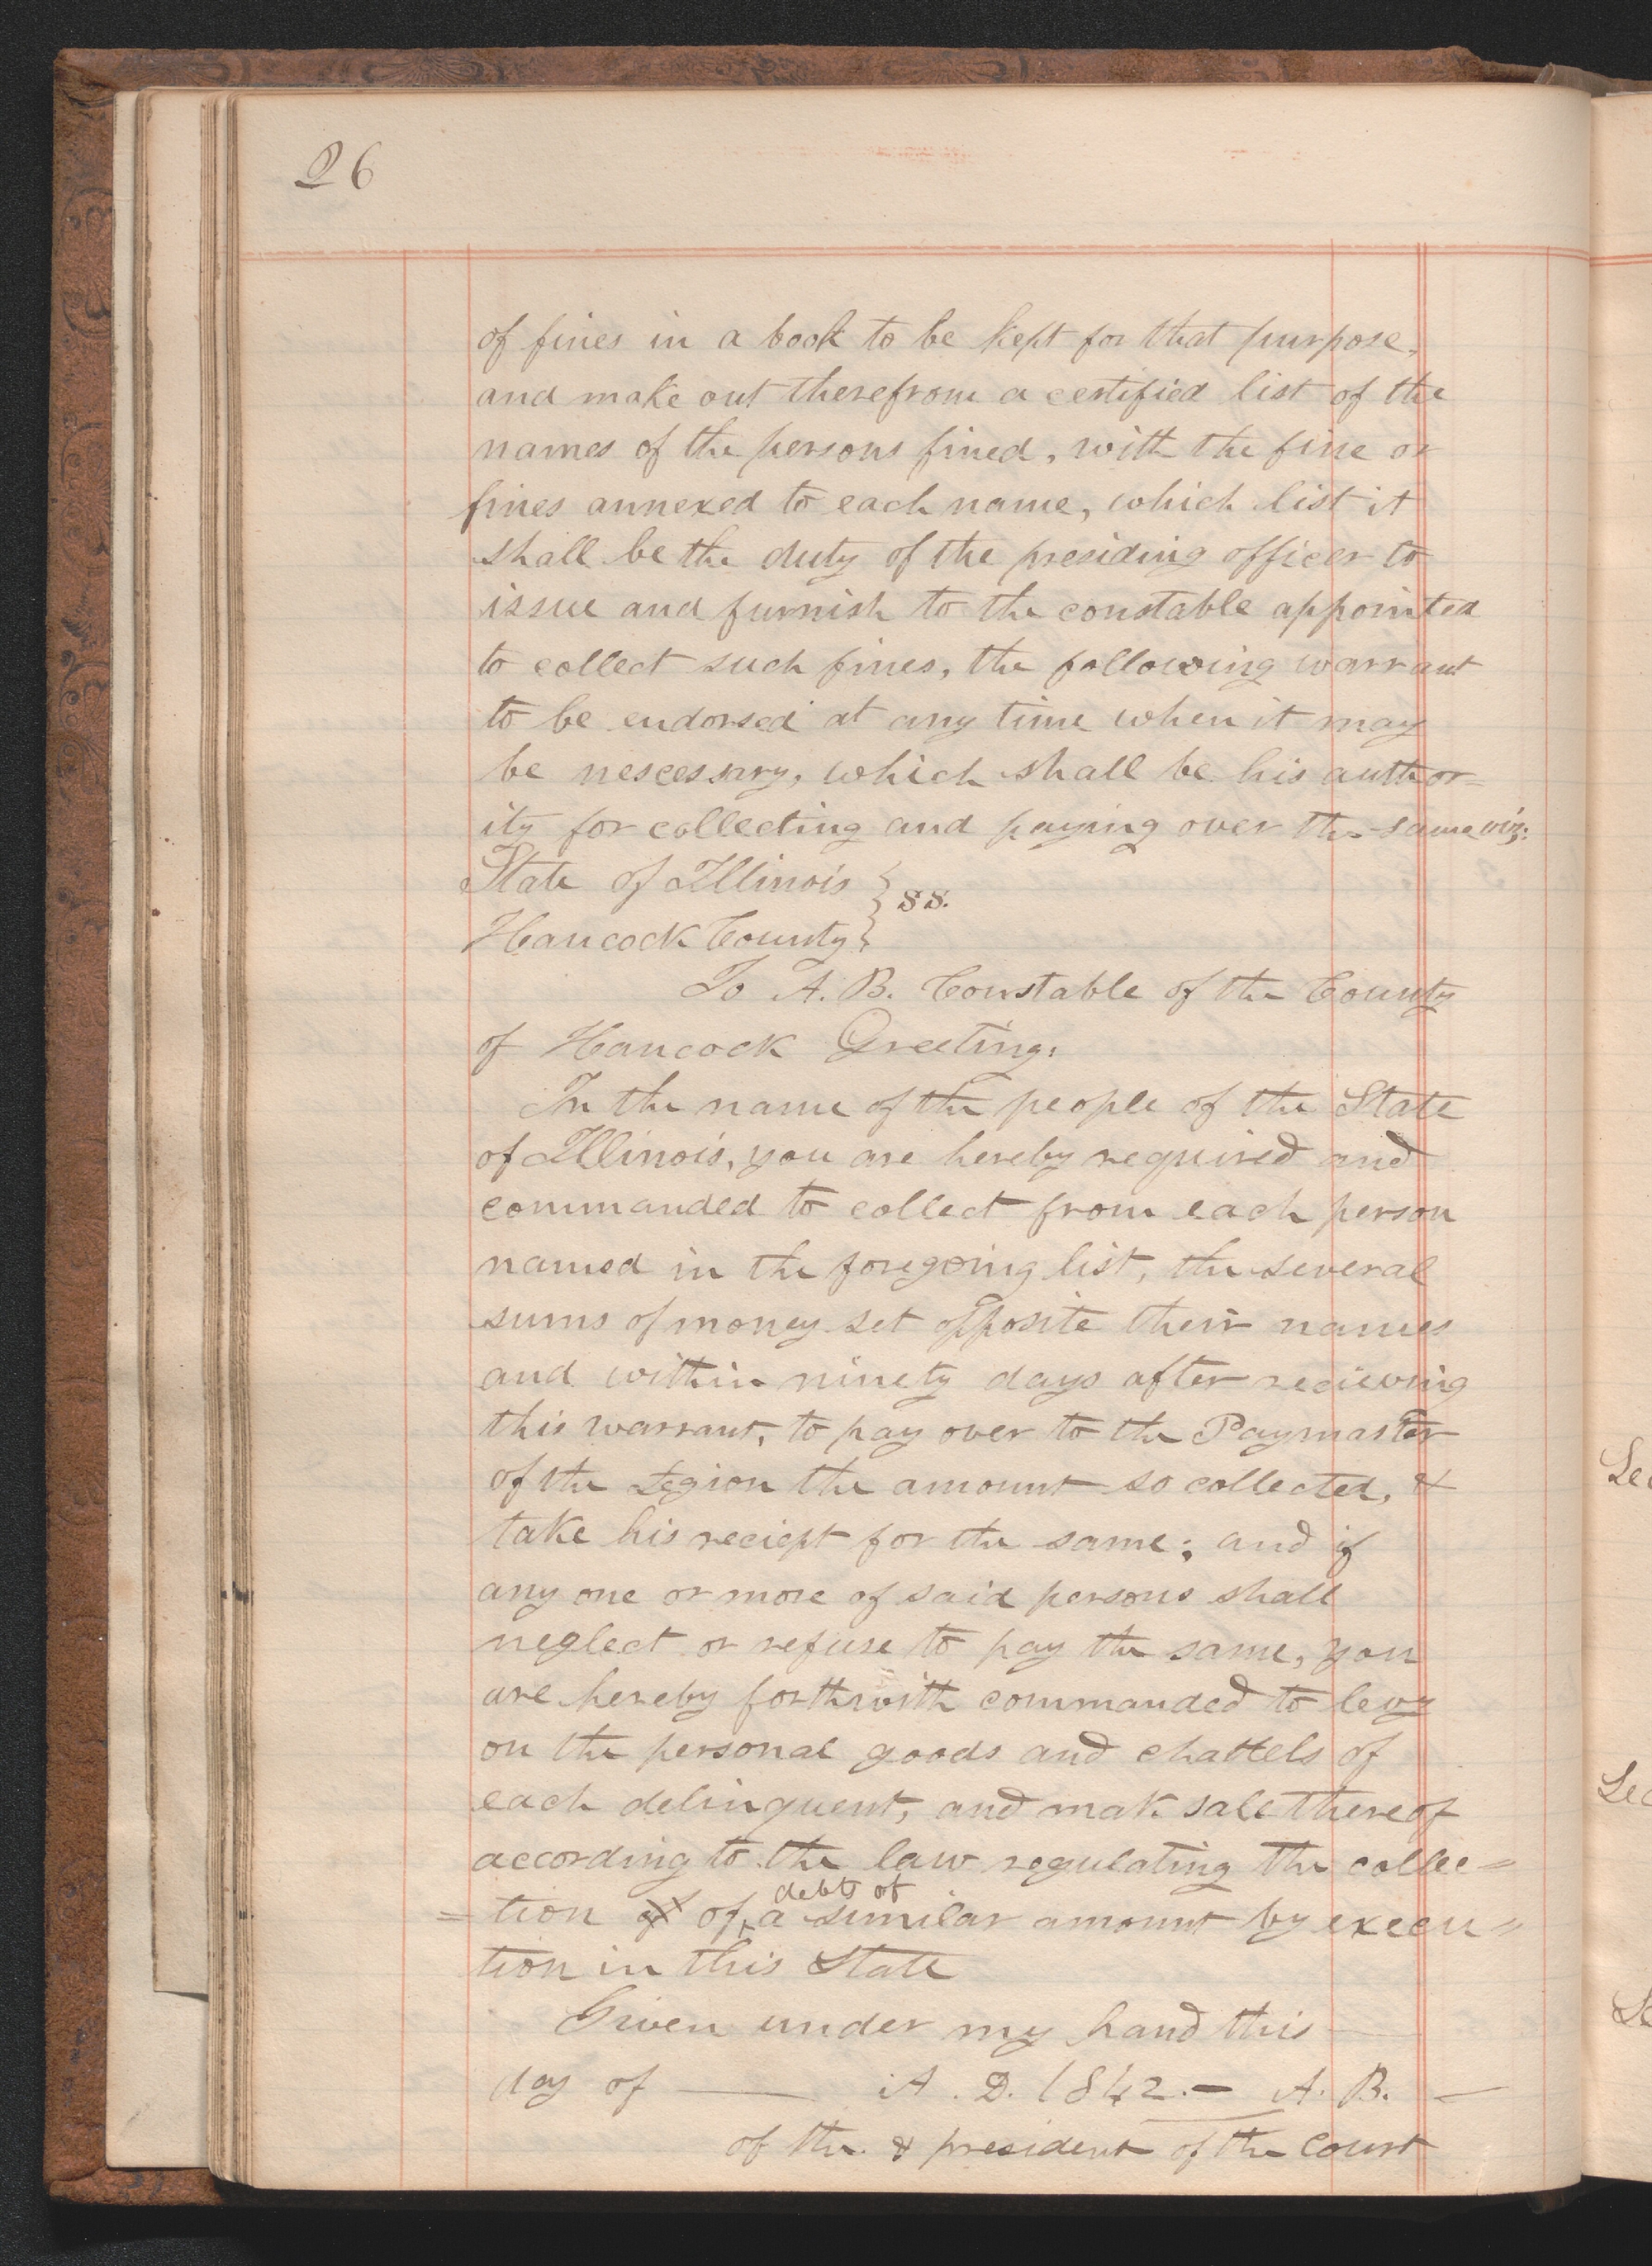 26
of fines in a book to be kept for that purpose,
and make out therefrom a certified list of the
names of the persons fined, with the fine or
fines annexed to each name, which list it
shall be the duty of the presiding officer to
issue and furnish to the constable appointed
to collect such fines, the following warrant
to be endorsed at any time when it may
be nescessary, which shall be his author-
ity for collecting and paying over the same viz:
State of Illinois } ss.
Hancock County }
To A. B. Constable of the County
of Hancock Greeting:
In the name of the people of the State
of Illinois, you are hereby required and
commanded to collect from each person
named in the foregoing list, the several
sums of money set opposite their names
and within ninety days after recieving
this warrant, to pay over to the Paymaster
of the Legion the amount so collected, &
take his reciept for the same; and if
any one or more of said persons shall
neglect or refuse to pay the same, you
are hereby forthwith commanded to levy
on the personal goods and chattels of
each delinquent, and mak sale thereof
according to the law regulating the collec=
debts of
=tion of of a similar amount by execu=
tion in this State
Given under my hand this —
day of — A. D. 1842.— A. B. —
of the & president of the Court
Sec
Sec
Se